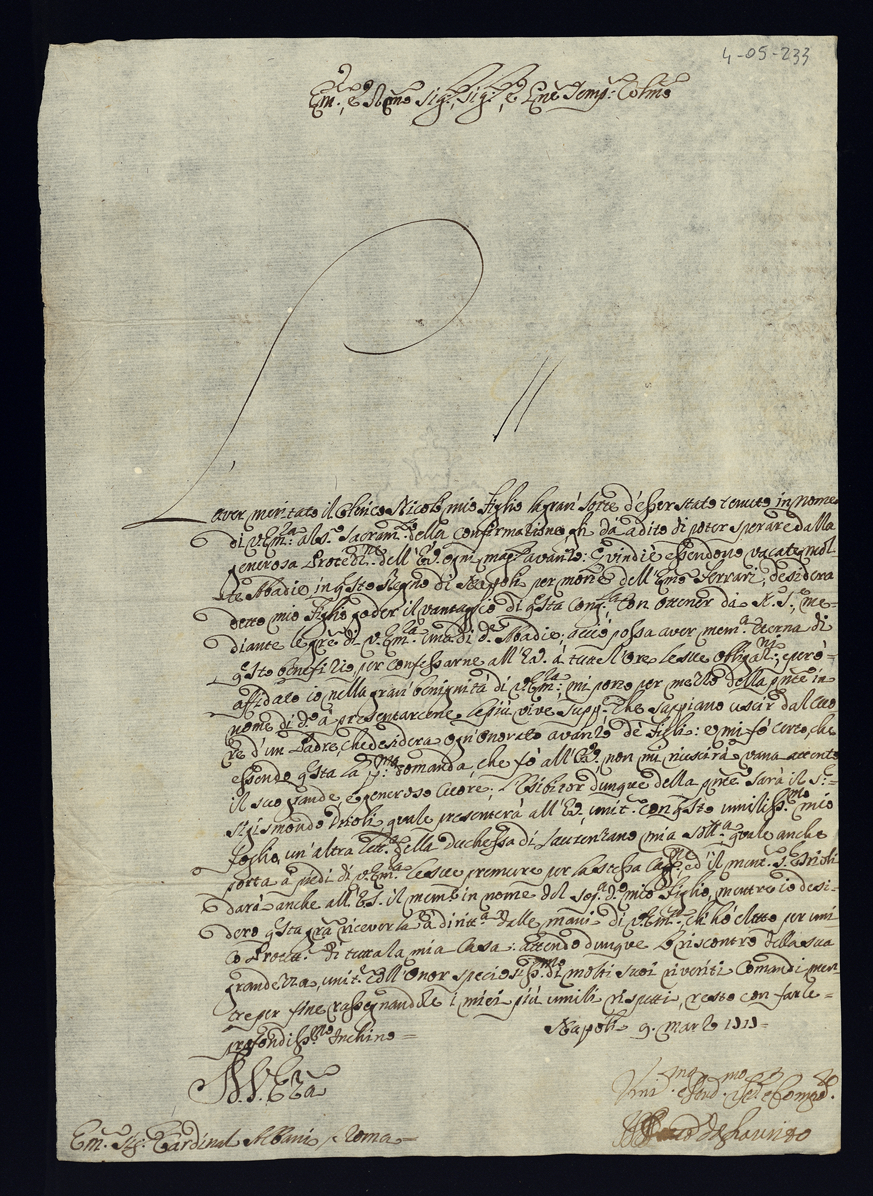 4-05-233
Em.e e R.mo Sig.r, Sig.r, e Pne Semp.e Colmo
L'aver meritato il Chierico Nicolò mio figlio la gran' sorte d'esser stato tenuto in nome
di V. Em.za al S. Sacram.to della Confirmazione, gli dà adito di poter sperare dalla
generosa Protez.ne dell' E.V. ogni magg.r avanzo: E quindi è essendono vacate mol-
te Abadie in q.sto Regno di Napoli per morte dell' Emo Ferrari, desidera
detto mio figlio goder il vantaggio di q.sta cong.ra con ottener da N. S., me-
diante le gre di V. Em.za una di d.e Abadie; acciò possa aver mem.a eterna di
q.sto benefizio per confessarne all' E.V. à tutte l'Ore le sue obligaz.ni; e però
affidato io nella gran' benignità di V. Em.za, mi porto per mezzo della pnte in
nome di d.o à presentarcene le più vive supp.e che sappiano uscir dal Cuo-
re d'un Padre, che desidera ogn'onorato avanzo de' figli: e mi fò certo, che
essendo q.sta la p.ma domanda, che fò all' E.V., non mi riuscirà vana attento
il suo grande, e generoso Cuore; l'Esibitor dunque della pnte sarà il S.r
Sigismondo quale presenterà all' E.V. unit.e con q.sto umiliss.mo mio
foglio, un'altra lett.a della Duchessa di mia quale anche
porta à piedi di V. Em.za le sue premure per la stessa ed il ment.o S.
darà anche all' E.V. il mem.le in nome del d.o mio figlio, mentre io desi-
dero q.sta gra riceverla à diritt.a dalle mani di V. Em.za, ch'hò eletto per uni-
co Prott.e di tutta la mia Casa: attendo dunque il riscontro della sua
grandezza, unit.e coll' Onor speciosiss.mo di molti suoi riveriti Comandi men-
tre per fine rassegnandole i miei più umili rispetti, resto con farle
profondiss.mo Inchino
Napoli 9. Marzo
D. V. E.za
Em.e Sig.r Cardinal Albani / Roma